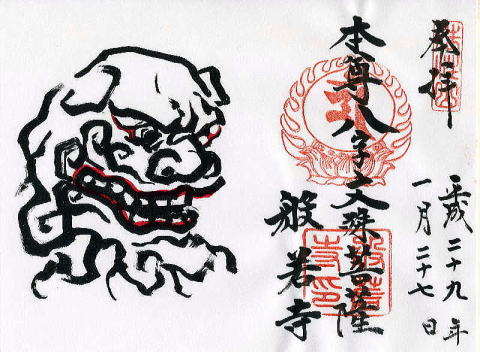 奉拝
平成二十九年
一月二十七日
本尊八字文殊菩薩
般若寺